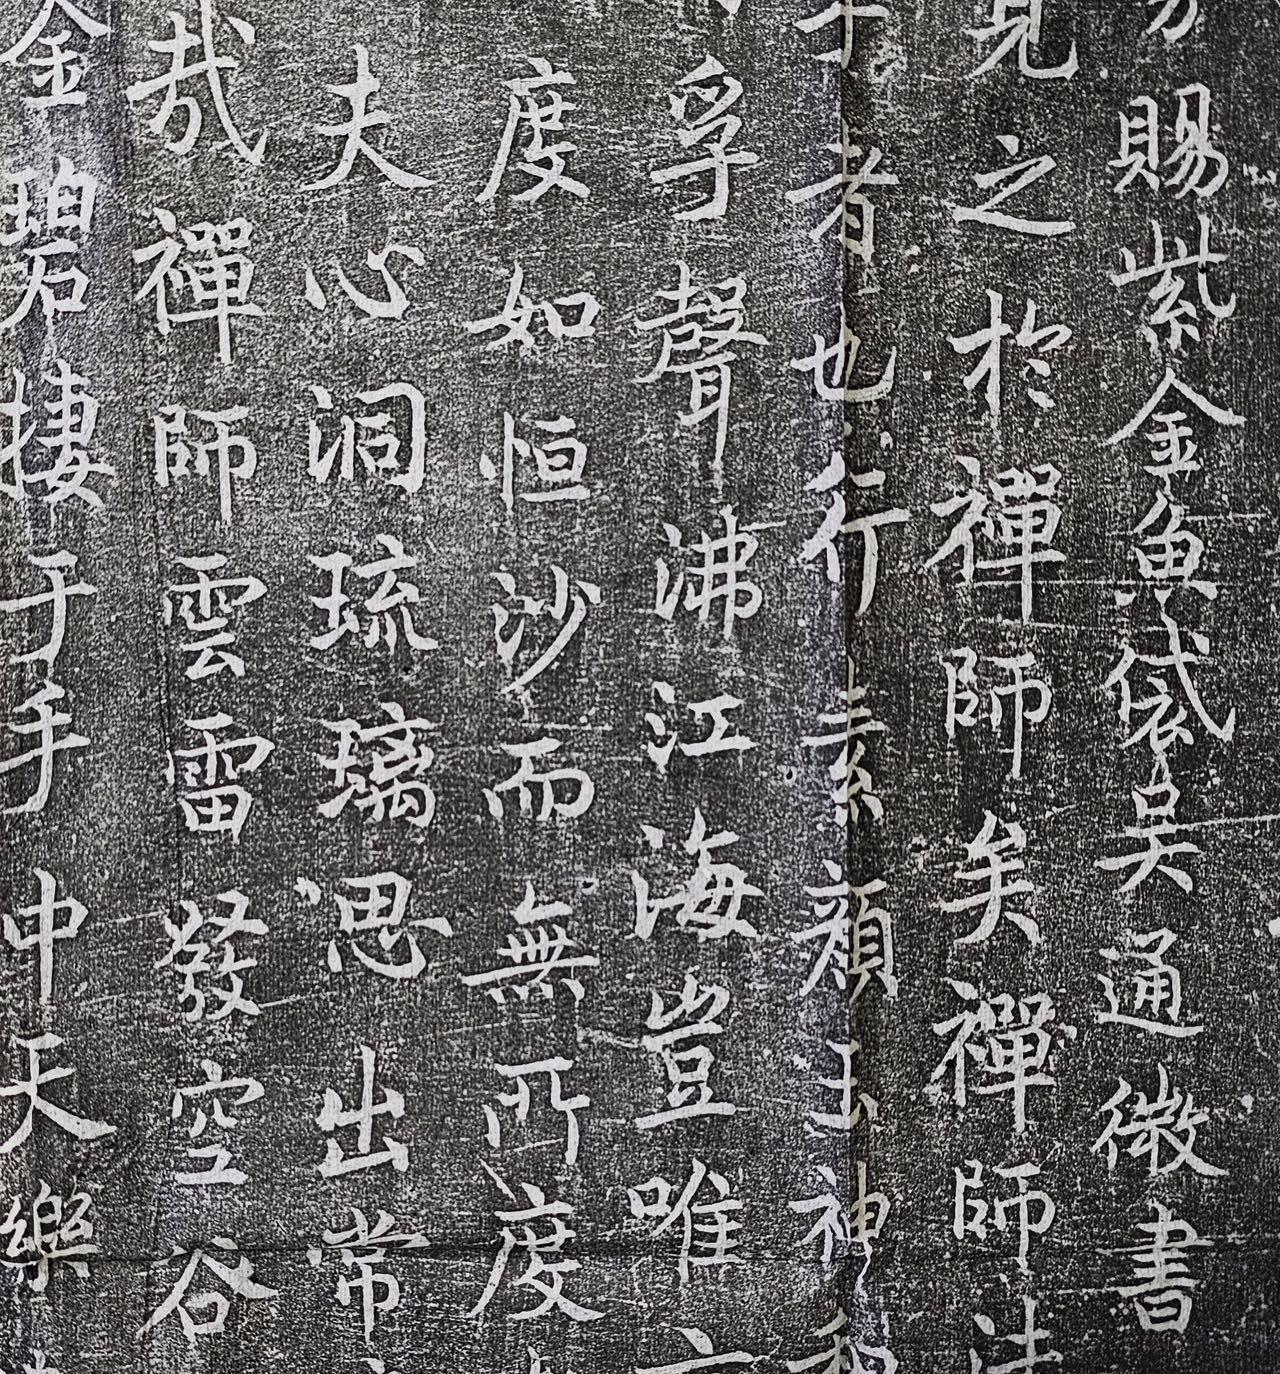 賜紫金魚袋吴通微書
見之於禪師矣禪師法
者也行素顏玉神
孚聲沸江海豈唯
度如恒沙而無所度
夫心洞琉璃思出常
哉禪師雲雷發空谷
金碧棲于手中天樂